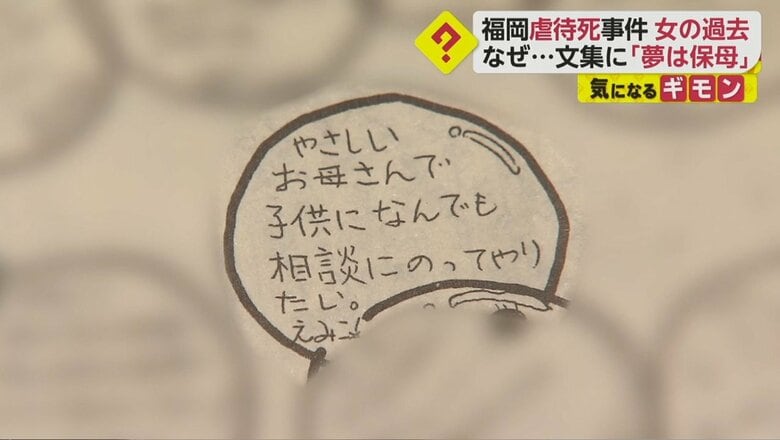 福岡虐待死事件 女の過去
なぜ…文集に「夢は保母」
気になるギモン
?
やさしい
お母さんで
子供になんでも
相談にのってやり
たい。
えみこ